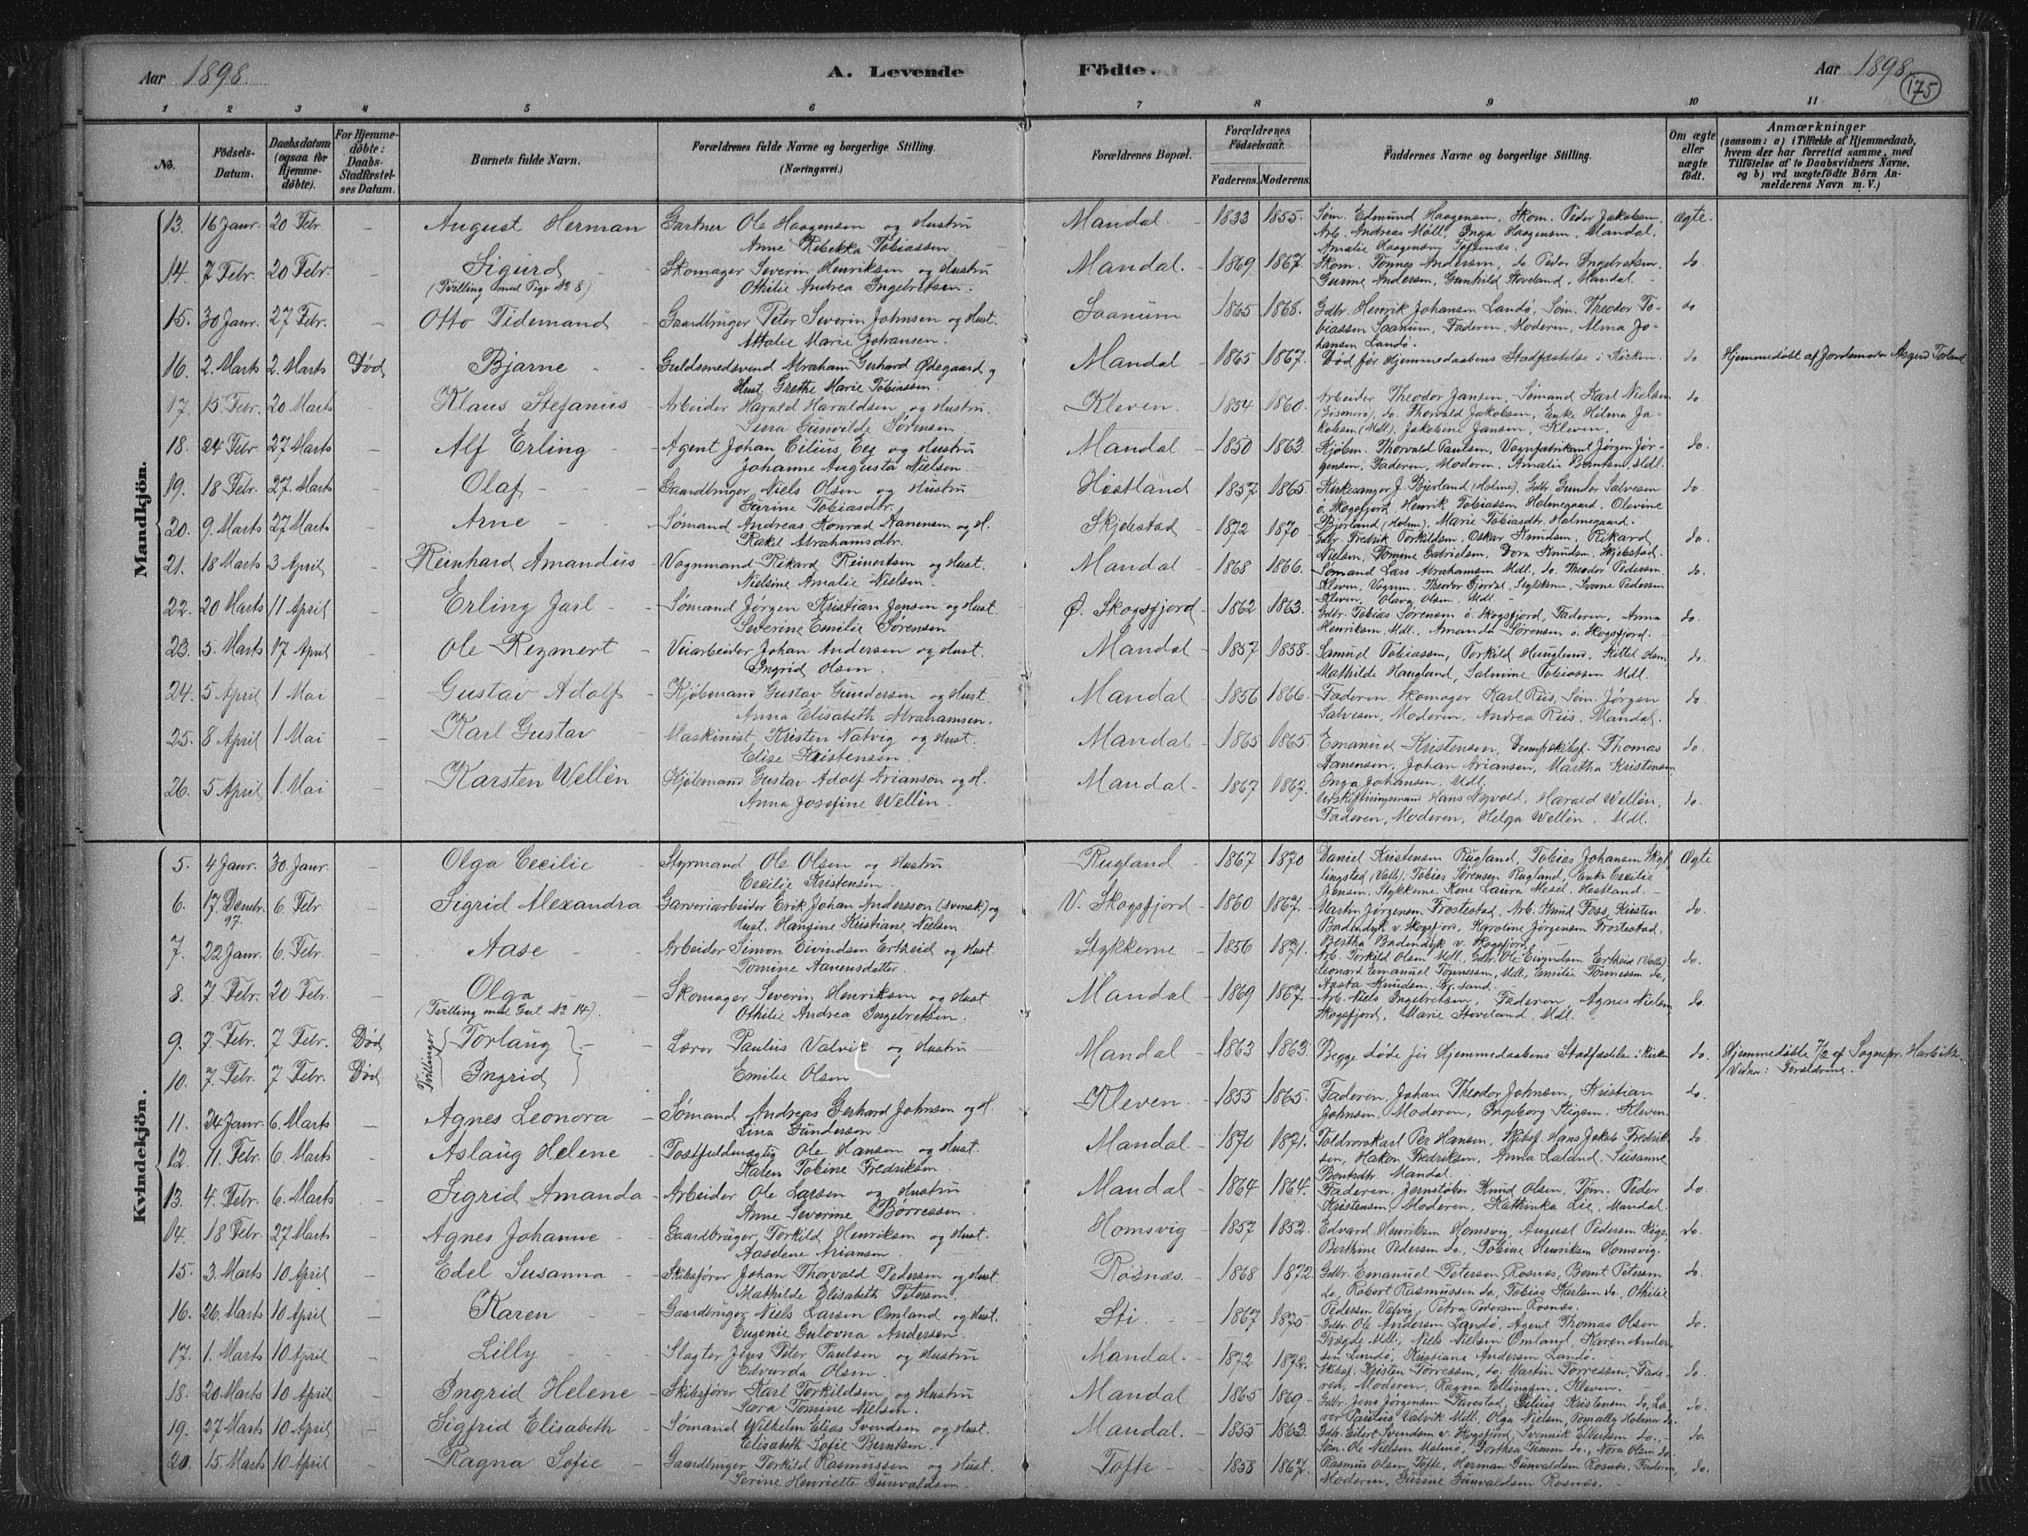 Aar 1898. A. Levende Födte. Aar 1898 175
1 2 3 4 5 6 7 8 9 10 11
No. Födsels-Datum. Daabsdatum (ogsaa for Hjemmedöbte). For Hjemmedöbte: Daabs-Stadfæstelses Datum. Barnets fulde Navn. Forældrenes fulde Navne og borgerlige Stilling. (Næringsvei.) Forældrenes Bopæl. Forældrenes Födselsaar. Faderens. Moderens. Faddernes Navne og borgerlige Stilling. Om ægte eller uægte födt. Anmærkninger (saasom: a) i Tilfælde af Hjemmedaab, hvem der har forrettet samme, med Tilföielse af to Daabsvidners Navne, og b) ved uægtefödte Börn Anmelderens Navn m. V.)
Mandkjön.
13. 16 Janr. 20 Febr. - August Herman Gartner Ole Haagensen og Hustru Mandal. 1833 1855. Søm. Edmund Haagensen, Skom. Peder Jakobsen, ægte.
Anne Rebekka Tobiassen. Arb. Andreas Møll, Inga Haagensen, Mandal,
Amalie Haagensen, Toftenæs.
14. 7 Febr. 20 Febr. - Sigurd Skomager Severin Henriksen og Hustru Mandal. 1869 1867. Skom. Tønnes Andersen, do. Peder Ingebretsen, do.
(Tvilling med Pige № 8) Othilie Andrea Ingebretsen. Gurine Andersen, Gunhild Stoveland, Mandal.
15. 30 Janr. 27 Febr. - Otto Tidemand Gaardbruger Peter Severin Johnsen og Hust. Saanum 1865 1868. Gdbr. Henrik Johansen Landø, Søm. Theodor To- do
Attalie Marie Johansen. biassen Saanum, Faderen, Moderen, Alma Jo-
hansen Landø.
16. 2. Marts 2. Marts Død Bjarne Guldsmedsvend Abraham Gerhard Ødegaard og Mandal 1865 1867. Død før Hjemmedaabens Stadfæstelse i Kirken. do Hjemmedøbt af Jordemoder
Hust. Grethe Marie Tobiassen.
17. 15 Febr. 20 Marts - Klaus Stefanus Arbeider Harald Haraldsen og Hustru Kleven. 1854 1860. Arbeider Theodor Jansen, Sømand Karl Nielsen do
Sara Gunvilde Sørensen. do. Thorvald Jakobsen, Enke Helma Ja-
kobsen (Mdl), Jakobine Jansen, Kleven.
18. 24 Febr. 27 Marts - Alf Erling Agent Johan Cilius Eeg og Hustru Mandal 1850 1863. Kjøbm. Thorvald Paulsen, Vognfabrikant Jørgen Jør- do.
Johanne Augusta Nielsen. gensen, Faderen, Moderen, Amalie Berntsen Mdl.
19. 18 Febr. 27. Marts - Olaf Gaardbruger Niels Olsen og Hustru Hestland 1857 1865. Kirkesanger J. Bjerland (Holme), Gdbr. Gunder Salvesen do
Tarine Tobiasdtr. ö. Skogsfjord, Henrik Tobiassen Holmegaard, Olevine
Bjerland (Holm), Marie Tobiasdtr. Holmegaard.
20. 9 Marts 27 Marts - Arne Sømand Andreas Konrad Aanensen og H. Skjebstad 1872 1870 Gdbr. Fredrik Torkildsen, Oskar Knudsen, Rikard do.
Rakel Abrahamsdtr. Nielsen, Tomine Gabrielsen, Dora Knudsen, Skjebstad.
21. 18 Marts 3 April - Reinhard Amandus Vognmand Rikard Reinertsen og Hust. Mandal 1868 1866. Sømand Lars Abrahamsen Mdl, do. Theodor Pedersen do.
Nielsine Amalie Nielsen. Kleven, Vognm. Theodor Fjordal, Stykkerne, Pedersen
Kleven, Olava Olsen Mdl.
22. 20 Marts 11 April - Erling Jarl Sømand Jørgen Kristian Jensen og Hust. Ø. Skogsfjord 1862 1863. Gdbr. Tobias Sørensen ö. Skogsfjord, Faderen, Anna do.
Severine Emilie Sørensen Henriksen Mdl., Amanda Sørensen ö. Skogsfjord.
23. 5 Marts 17 April Ole Regmert Veiarbeider Johan Andersen og Hust. Mandal 1857 1858. Samuel Tobiassen, Torkild Haugland, do.
Ingrid Olsen. Mathilde Haugland, Salmine Tobiassen Mdl.
24. 5 April 1 Mai - Gustav Adolf Kjøbmand Gustav Gundersen og Hust. Mandal 1856 1866. Faderen, Skomager Karl Riis, Søm. Jørgen do
Anna Elisabeth Abrahamsen. Salvesen, Moderen, Andrea Riis, Mandal.
25. 8 April 1 Mai - Karl Gustav Maskinist Kristen Natvig og Hust. Mandal 1865 1865. Emanuel Kristensen, Dampskibsf. Thomas do.
Elise Kristensen. Aanensen, Johan Ariansen, Martha Kristensen
Inga Johansen, Mdl.
26. 5 April 1. Mai - Karsten Wellén Kjøbmand Gustav Adolf Arianson og H. Mandal 1867 1867. Hans Nyvold, Harald Wellén, do.
Anna Josefine Wellén. Faderen, Moderen, Helga Wellén. Mdl.
Kvindekjön.
5. 4 Janr. 30. Janr. - Olga Cecilie Styrmand Ole Olsen og Hustru Rugland 1867 1870 Daniel Kristensen Rugland, Tobias Johansen Ægte
Cecilie Kristensen. (Valle), Tobias Sørensen Rugland, Enke Cecilie
Jensen, Stykkerne, Kone Laura Mesel, Hestland.
6. 17. Decmbr. 6. Febr. - Sigrid Alexandra Garveriarbeider Erik Johan Andersson (svensk) og V. Skogsfjord 1860 1867. Martin Jørgensen Frostestad, Arb. Knud Foss, Kirsten do.
97. Hust. Hansine Kristiane Nielsen. Badendyk v. Skogsfjord, Karoline Jørgensen Frostestad,
Bertha Badendyk v. Skogsfjord.
7. 22 Janr. 6. Febr. - Aase Arbeider Simon Eivindsen Ertheid og Hust. Stykkerne 1856 1871. Arb. Torkild Olsen Mdl. Gdbr. Ole Eivindsen Ertheid (Valle) do.
Tomine Aanensdatter. Leonard Emanuel Tønnessen, Mdl., Emilie Tønnessen do,
Aasta Knudsen, Kr.sand.
8. 7 Febr. 20 Febr. - Olga Skomager Severin Henriksen og Hust. Mandal 1869 1867. Arb. Niels Ingebretsen, Faderen, Agnes Nielsen do.
(Tvilling med Gut № 14). Othilie Andrea Ingebretsen. Skogsfjord, Marie Stoveland, Mdl.
9. 7. Febr. 7 Febr. Død Tvillinger Torlaug Lærer Paulius Valvik og Hustru Mandal 1863 1863. Begge døde før Hjemmedaabens Stadfæstelse i Kirken do. Hjemmedøbte 7/2 af Sognepr.
10. 7. Febr. 7 Febr. Død Ingrid Emilie Olsen Vidner: Forældrene.
11. 24 Janr. 6. Marts - Agnes Leonora Sømand Andreas Gerhard Johnsen og H. Kleven. 1855 1865. Faderen, Johan Theodor Johnsen, Kristian do.
Lina Gundersen. Johnsen, Moderen, Ingeborg Stigen, Kleven.
12. 11. Febr. 6. Marts - Aslaug Helene Postfuldmægtig Ole Hansen og Hust. Mandal. 1870 1871. Toldrorskarl Per Hansen, Skibsf. Hans Jakob Fredrik- do.
Karen Tobine Fredriksen. sen, Hakon Fredriksen, Anna Laland, Susanne
Bentsdtr. Mandal.
13. 4. Febr. 6. Marts - Sigrid Amanda Arbeider Ole Larsen og Hustru Mandal 1864 1864. Faderen, Jernstøber Knud Olsen, Tjm. Peder do.
Anne Severine Børressen. Kristensen, Moderen, Kathinka Lie, Mandal.
14. 18 Febr. 27 Marts - Agnes Johanne Gaardbruger, Torkild Henriksen og Hust. Homsvig 1857 1852. Edvard Henriksen Homsvig, August Pedersen do.
Aasdene Ariansen. Berthine Pedersen do, Tobine Henriksen Homsvig.
15. 3. Marts 10 April - Edel Susanna Skibsfører Johan Thorvald Pedersen og Hust. Rosnæs. 1868 1872. Gdbr. Emanuel Petersen Rosnæs, Bernt Petersen do.
Mathilde Elisabeth Petersen. do, Robert Rasmussen do, Tobias Karlsen do, Othilie
Pedersen Valvig, Petra Pedersen Rosnæs.
16. 26. Marts 10 April - Karen Gaardbruger Niels Larsen Omland og Hust. Sti. 1867 1875. Gdbr. Ole Andersen Landø, Agent Thomas Olsen do.
Eugenie Gulovna Andersen. Mdl., Niels Nielsen Omland, Karen Ander-
sen Landø, Kristiane Andersen Landø.
17. 1. Marts 10 April - Lilly Slagter Jens Peter Paulsen og Hustru Mandal. 1872 1872. Skibsf. Kristen Torressen, do. Martin Torressen, Fade- do.
Edvarda Olsen. ren, Moderen, Ragna Ellingsen, Kleven.
18. 20 Marts 10 April - Ingrid Helene Skibsfører Karl Torkildsen og Hustru Mandal 1865 1869. Gdbr. Jens Jørgensen Tarestad, Gilius Kristensen do, Læ- do.
Sara Tomine Nielsen. rer Paulius Valvik Mdl. Olga Nielsen,
19. 27 Marts 10 April - Sigfrid Elisabeth Sømand Wilhelm Elias Svendsen og Hust. Mandal. 1855 1863. Gdbr. Eilert Svendsen v. Skogsfjord, do.
Elisabeth Sofie Berntsen. Søm. Ole Nielsen Malmø, Nora Olsen do.
20. 15 Marts 10 April - Ragna Sofie Gaardbruger Torkild Rasmussen og Hust. Tofte 1858 1867. Rasmus Olsen, Tofte, Herman Gunvaldsen Rosnæs, Faderen, do.
Serine Henriette Gunvaldsen. Moderen, Gurine Gunvaldsen Rosnæs.